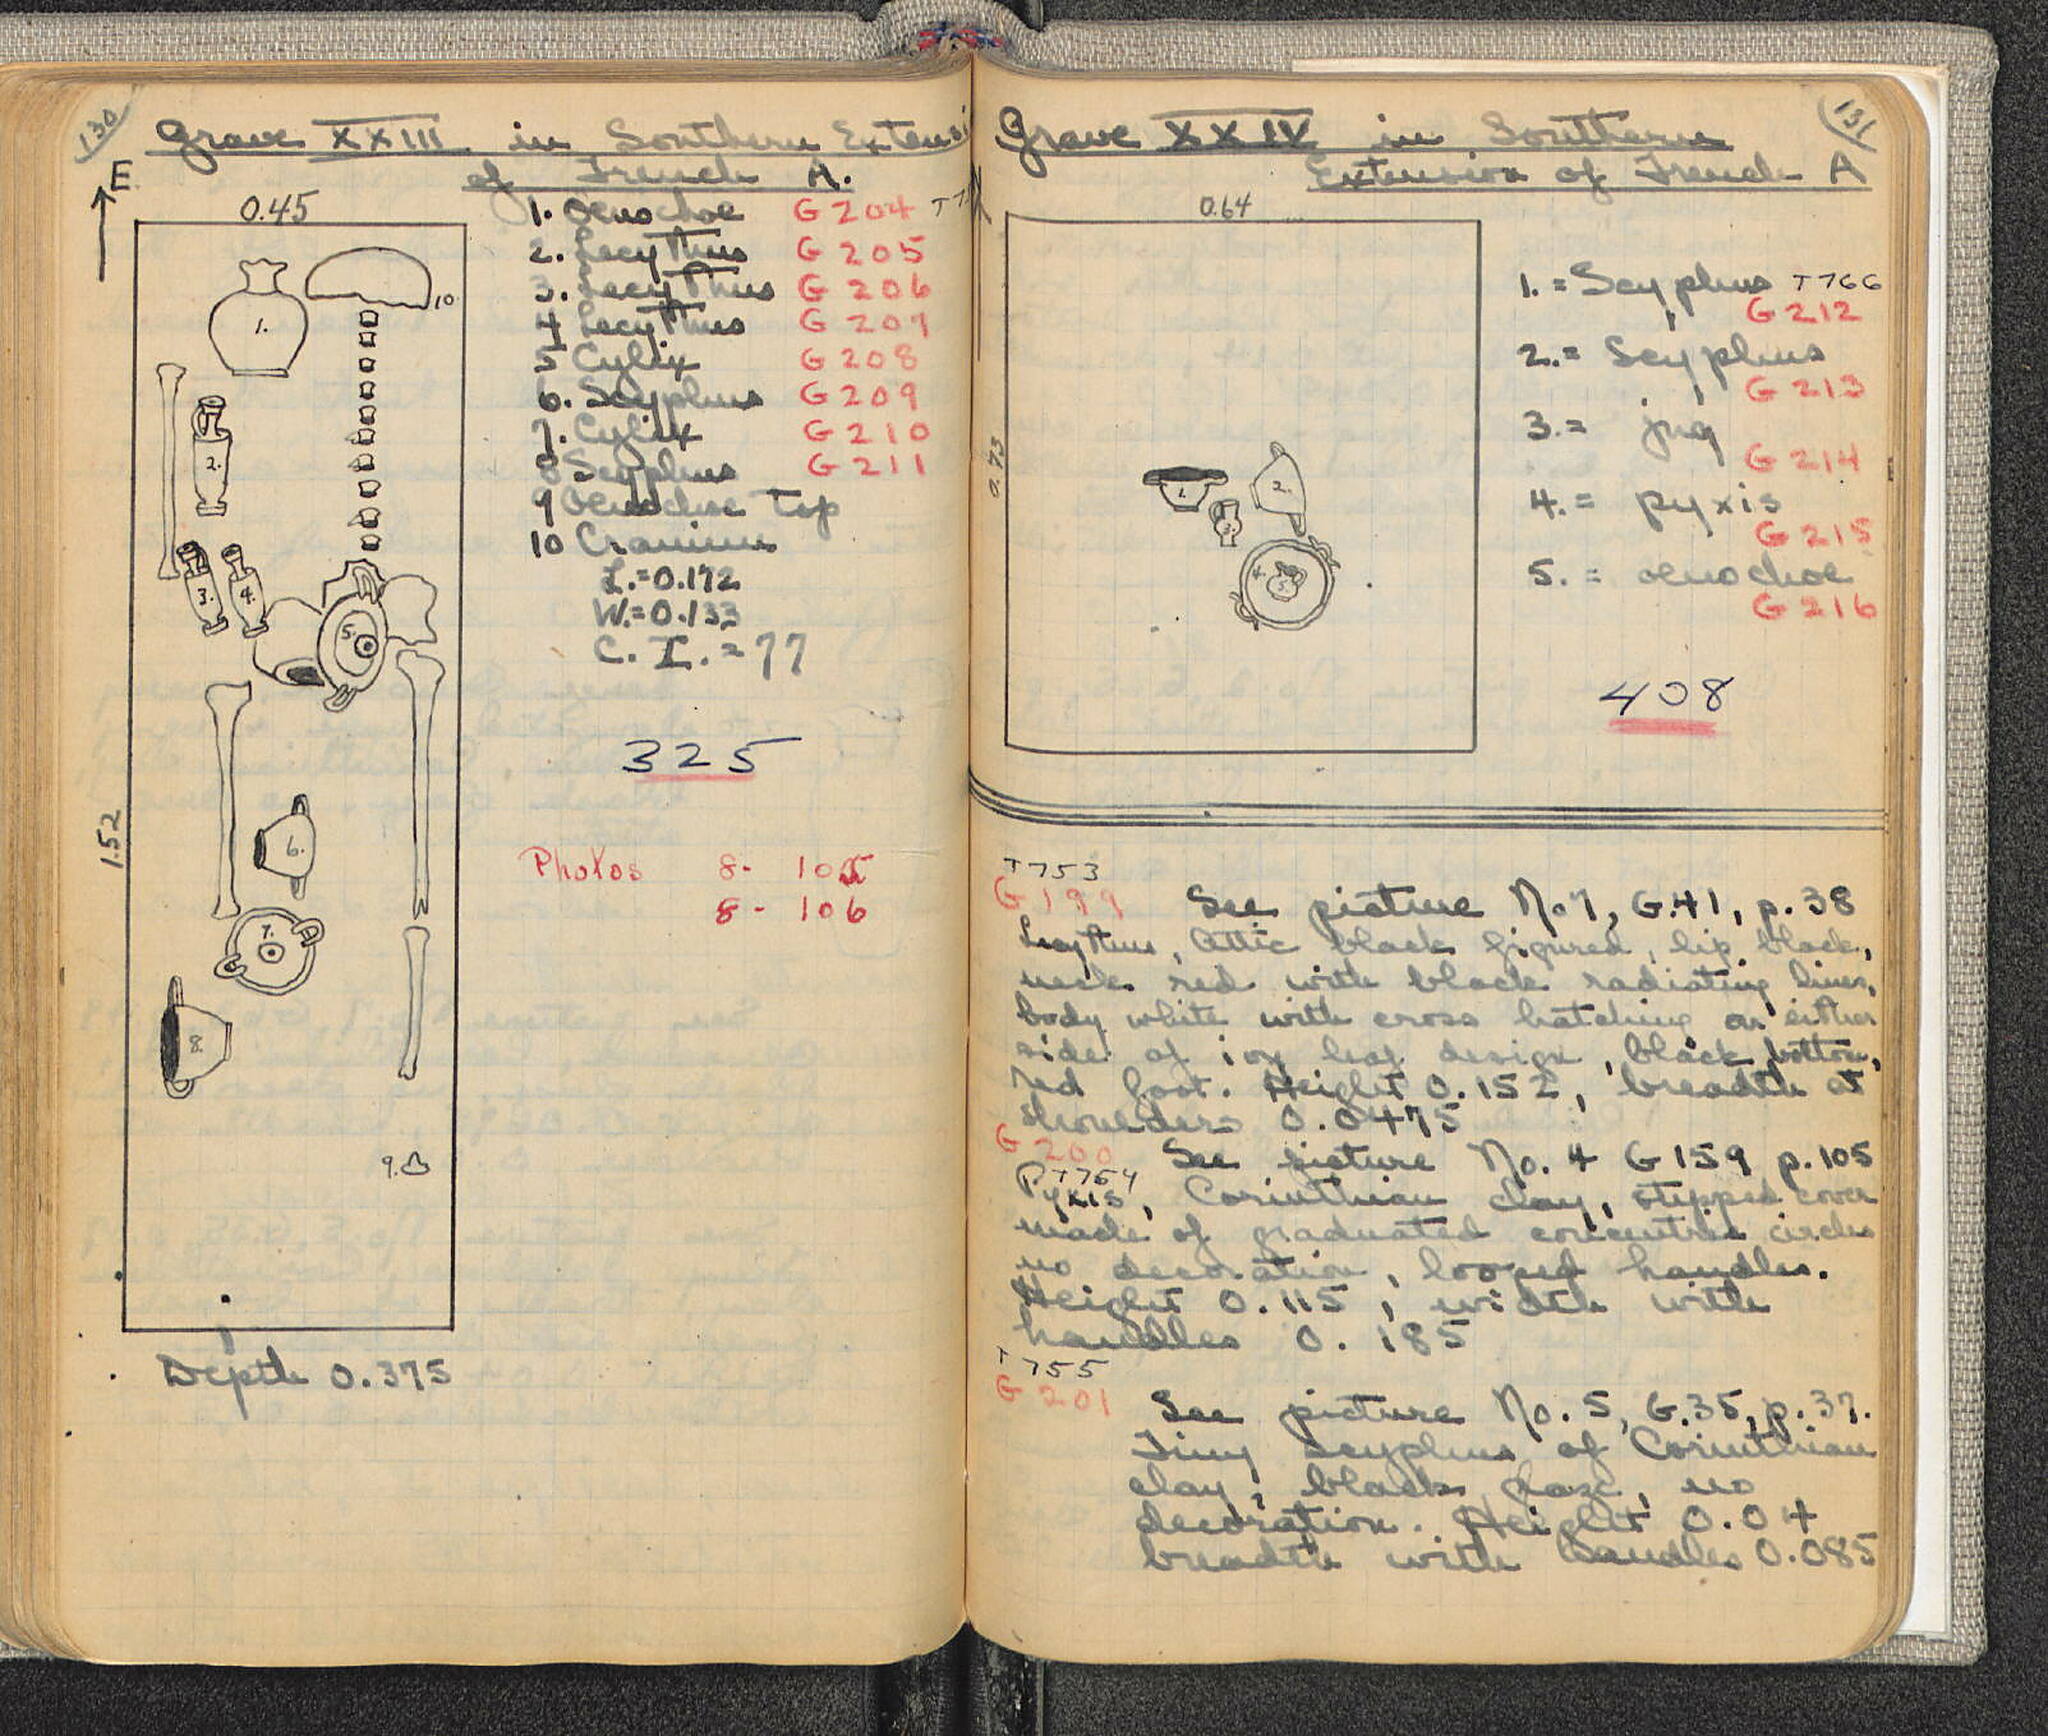 130
Grave XXIII in Southern Extensi
of Trench A.
E
0.45
1. Oenochoe G 204 T7
2. Lecythus G 205
3. Lecythus G 206
4 Lecythus G 207
5 Cylix G 208
6. Scyphus G 209
7. Cylix G 210
8 Scyphus G 211
9 Oenochoe Top
10 Cranium
L.=0.172
W.=0.133
C. I. = 77
325
Photos 8- 105
8- 106
1.
10
2.
3.
4.
5.
6.
7.
8.
9.
1.52
Depth 0.375
131
Grave XXIV in Southern
Extension of Trench A
0.64
0.73
1.
2.
3.
4.
5.
1. = Scyphus T766
G 212
2. = Scyphus
G 213
3. = jug
G 214
4. = pyxis
G 215
5. = oenochoe
G 216
408
T753
G 199 See picture No 7, G.41, p. 38
Lecythus, Attic black figured, lip black,
neck red with black radiating lines,
body white with cross hatching on either
side of ivy leaf design, black bottom,
red foot. Height 0.152, breadth at
shoulders 0.0475
G 200 See picture No. 4 G 159 p. 105
T754
Pyxis, Corinthian clay, stepped cover
made of graduated concentric circles
no decoration, looped handles.
Height 0.115, width with
handles 0.185
T755
G 201 See picture No. 5, G.35, p. 37.
Tiny scyphus of Corinthian
clay, black glaze, no
decoration. Height 0.04
breadth with handles 0.085